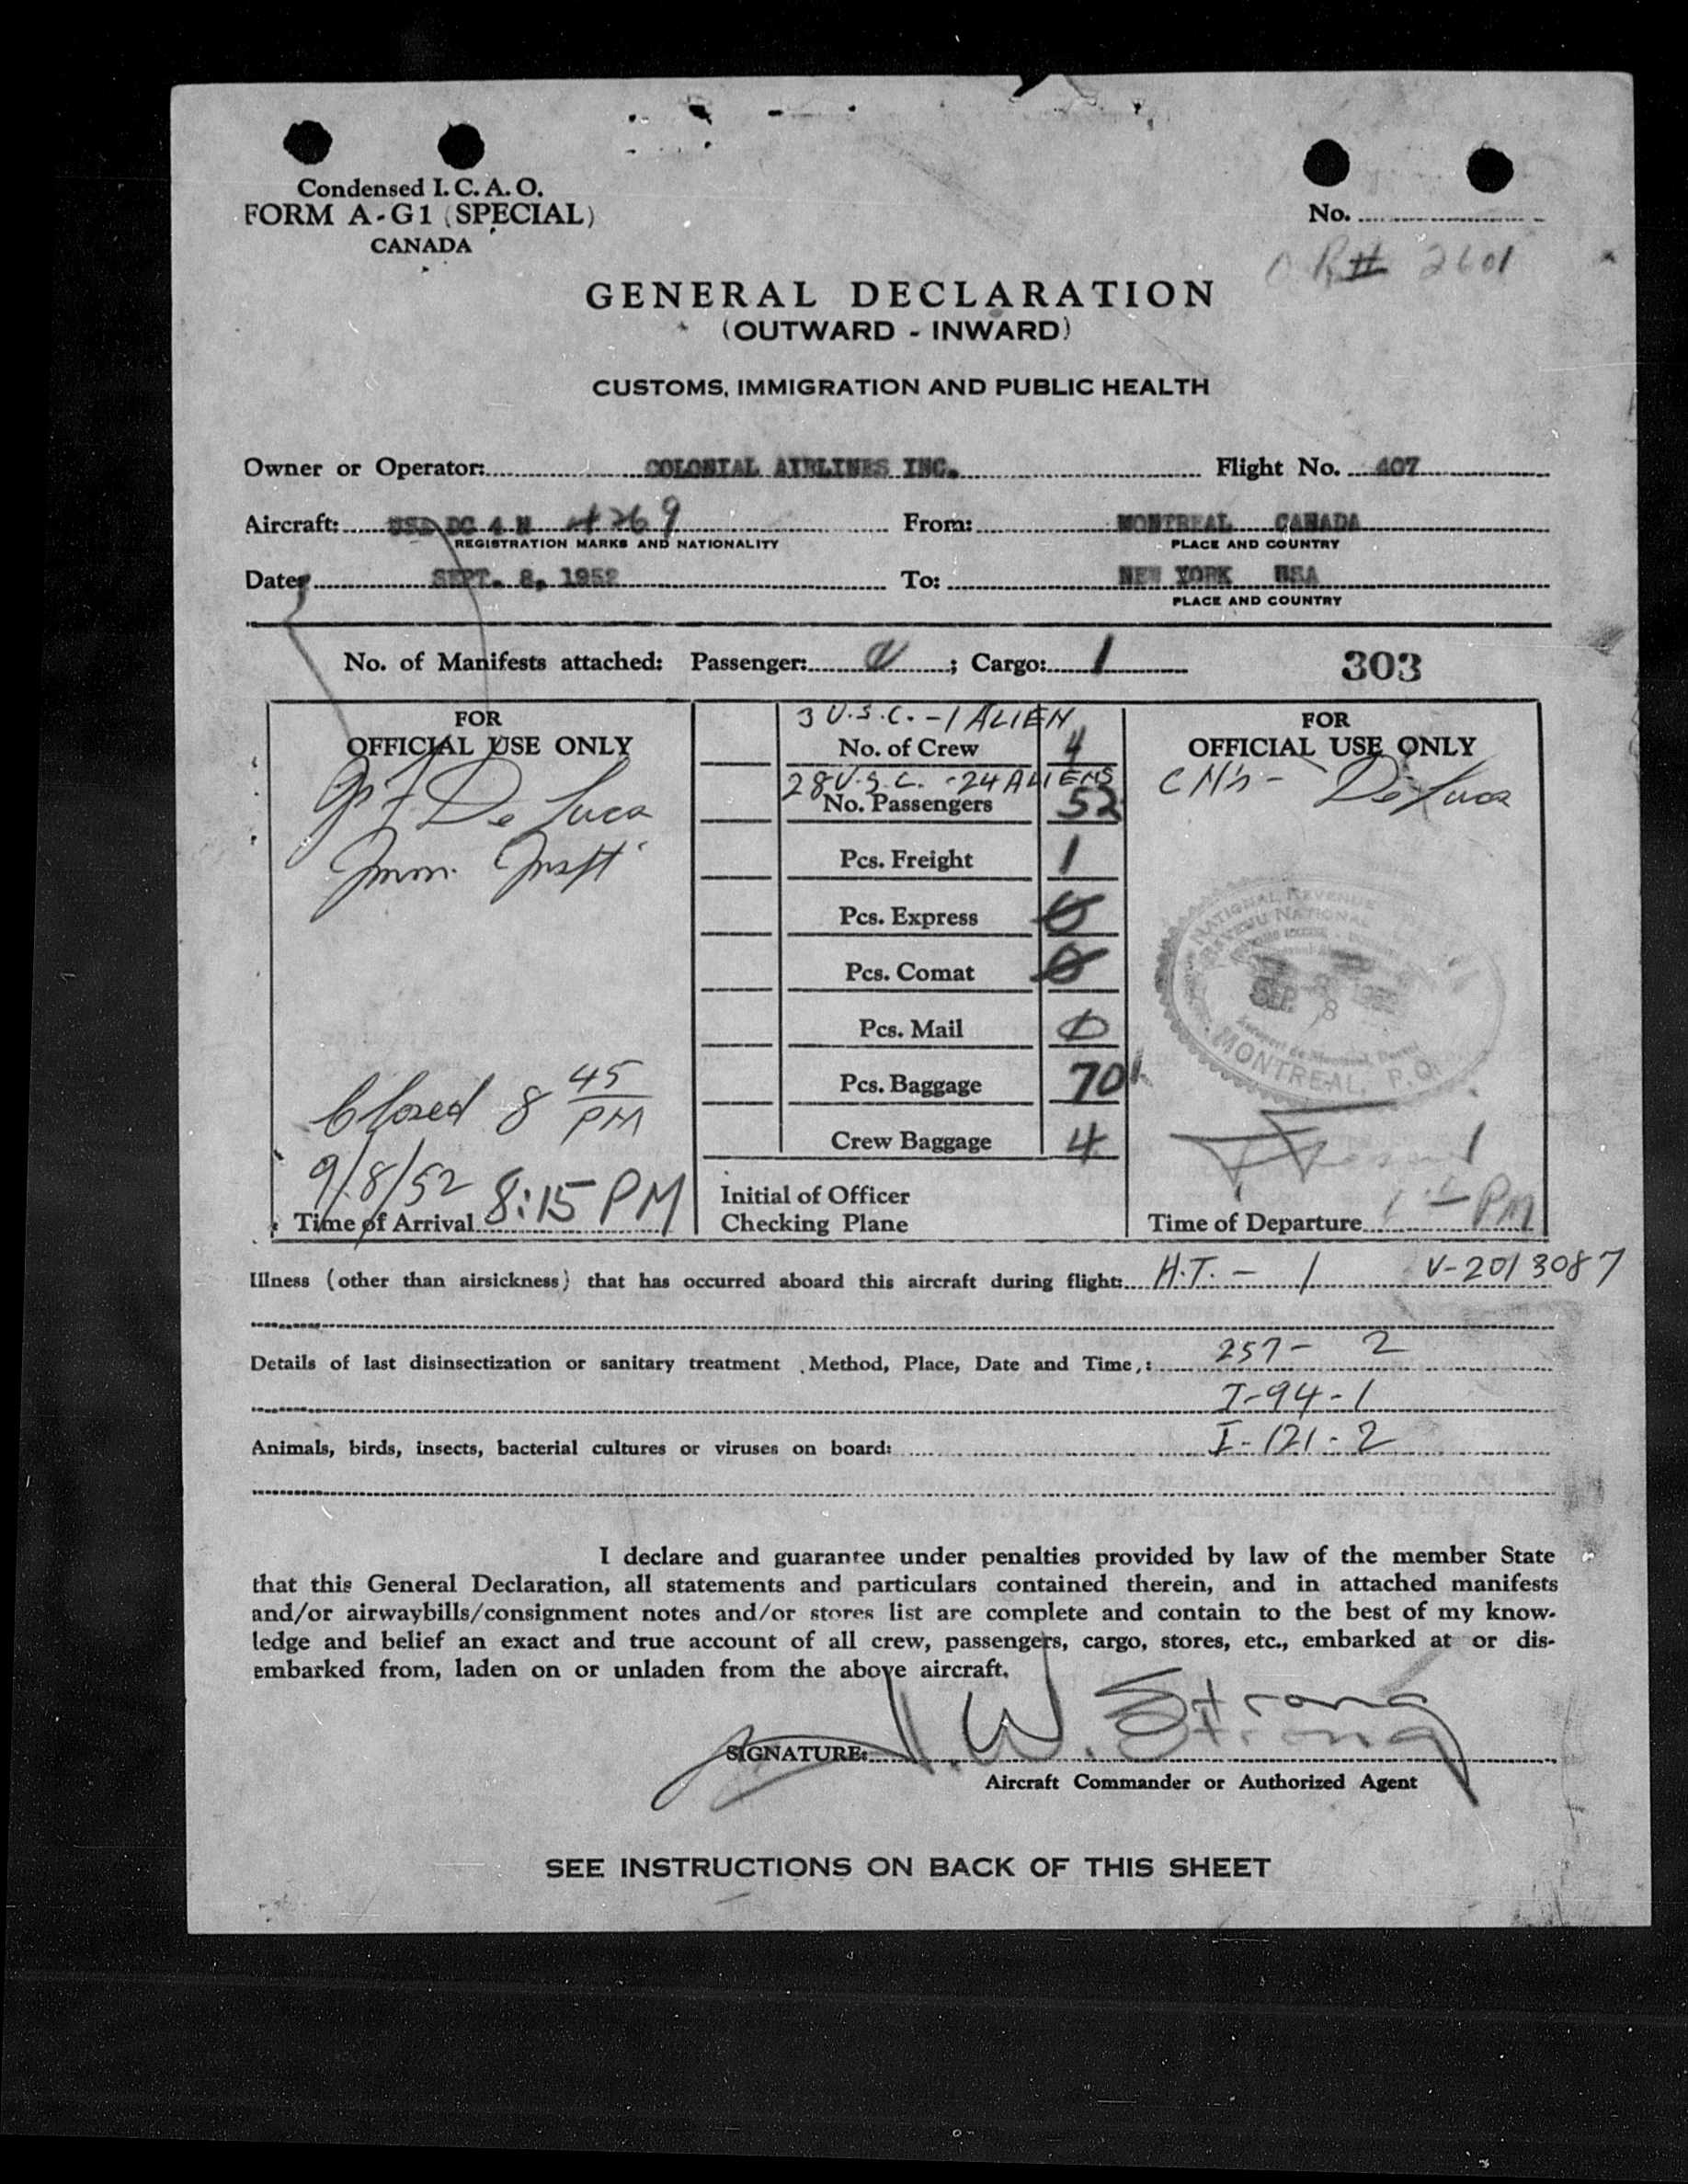 Condensed I. C. A. O.
FORM A-G1 (SPECIAL)
CANADA
No.
R# 2601
GENERAL DECLARATION
(OUTWARD - INWARD)
CUSTOMS, IMMIGRATION AND PUBLIC HEALTH
Owner or Operator: COLONIAL AIRLINES INC. Flight No. 407
Aircraft: USA DC 4 N From: MONTREAL CANADA
REGISTRATION MARKS AND NATIONALITY PLACE AND COUNTRY
Date: SEPT. 8, 1952 To: NEW YORK USA
PLACE AND COUNTRY
No. of Manifests attached: Passenger: ; Cargo: 1 303
FOR
OFFICIAL USE ONLY
De Luca
Imm. Inspt
Closed 8 45 PM
9/8/52
Time of Arrival 8:15 PM
3 U.S.C. - 1 ALIEN
No. of Crew 4
28 U.S.C. - 24 ALIENS
No. Passengers 52
Pcs. Freight 1
Pcs. Express 0
Pcs. Comat 0
Pcs. Mail 0
Pcs. Baggage 70
Crew Baggage 4
Initial of Officer
Checking Plane
FOR
OFFICIAL USE ONLY
De Luca
NATIONAL REVENUE
REVENU NATIONAL
SEP 8 1952
MONTREAL P.Q.
Time of Departure PM
Illness (other than airsickness) that has occurred aboard this aircraft during flight: H.T. - 1 V-2013087
Details of last disinsectization or sanitary treatment (Method, Place, Date and Time): 257 - 2
I-94-1
Animals, birds, insects, bacterial cultures or viruses on board: I-121-2
I declare and guarantee under penalties provided by law of the member State
that this General Declaration, all statements and particulars contained therein, and in attached manifests
and/or airwaybills/consignment notes and/or stores list are complete and contain to the best of my know-
ledge and belief an exact and true account of all crew, passengers, cargo, stores, etc., embarked at or dis-
embarked from, laden on or unladen from the above aircraft.
SIGNATURE: W. Strong
Aircraft Commander or Authorized Agent
SEE INSTRUCTIONS ON BACK OF THIS SHEET